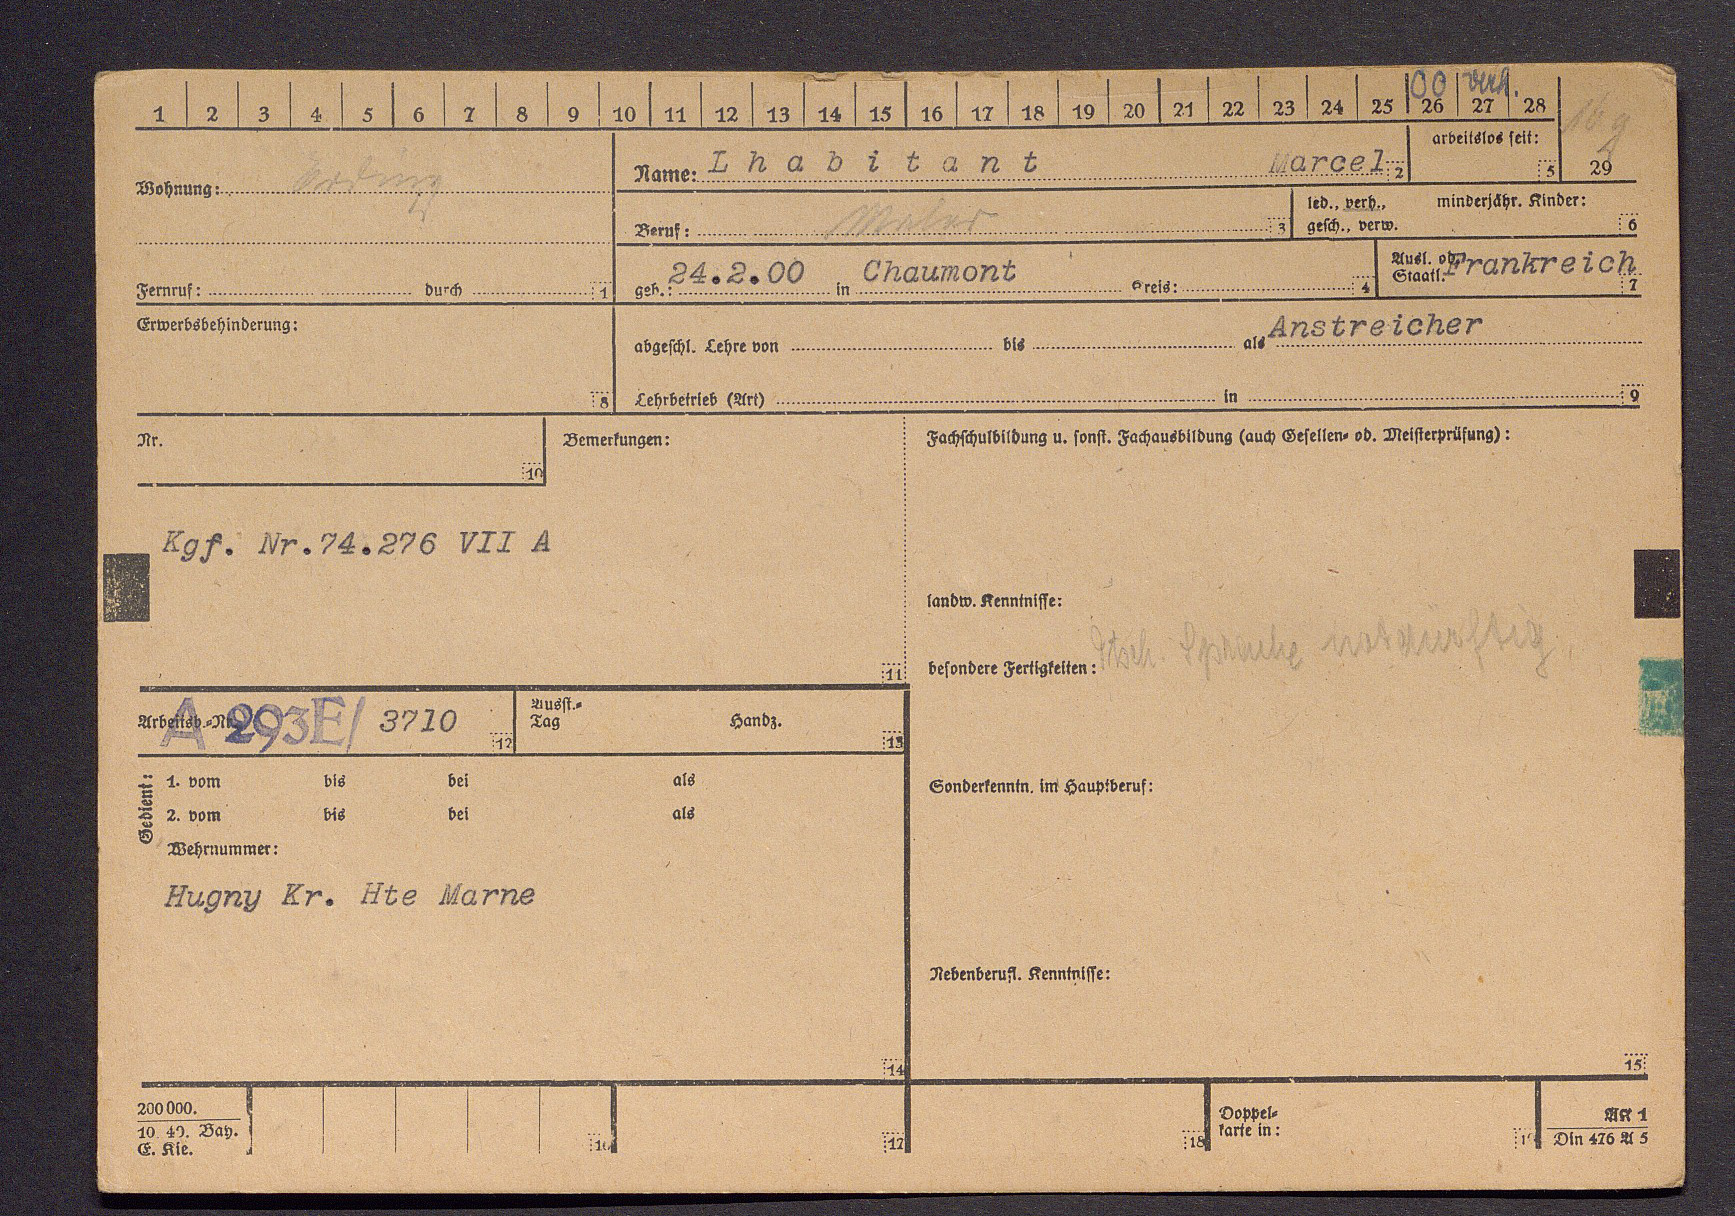 00 verh.
1 2 3 4 5 6 7 8 9 10 11 12 13 14 15 16 17 18 19 20 21 22 23 24 25 26 27 28
29
Wohnung: Erding
Name: Lhabitant Marcel 2
arbeitslos seit: 5
Beruf: Maler 3
led., verh., minderjähr. Kinder:
gesch., verw. 6
Fernruf: durch 1
geb.: 24.2.00 in Chaumont Kreis: 4
Ausl. od. Frankreich
Staatl. 7
Erwerbsbehinderung: 8
abgeschl. Lehre von bis als Anstreicher
Lehrbetrieb (Art) in 9
Nr. 10
Bemerkungen:
Kgf. Nr.74.276 VII A
11
Fachschulbildung u. sonst. Fachausbildung (auch Gesellen- od. Meisterprüfung):
landw. Kenntnisse:
besondere Fertigkeiten: Dtsch. Sprache notdürftig.
Arbeitsb.-Nr. A 293E/ 3710 12
Ausst.-
Tag Handz. 13
Gedient:
1. vom bis bei als
2. vom bis bei als
Wehrnummer:
Hugny Kr. Hte Marne
14
Sonderkenntn. im Hauptberuf:
Nebenberufl. Kenntnisse:
15
200 000.
10. 40. Bay.
E. Kie.
16 17 18
Doppel-
karte in: 19
AK 1
Din 476 A 5